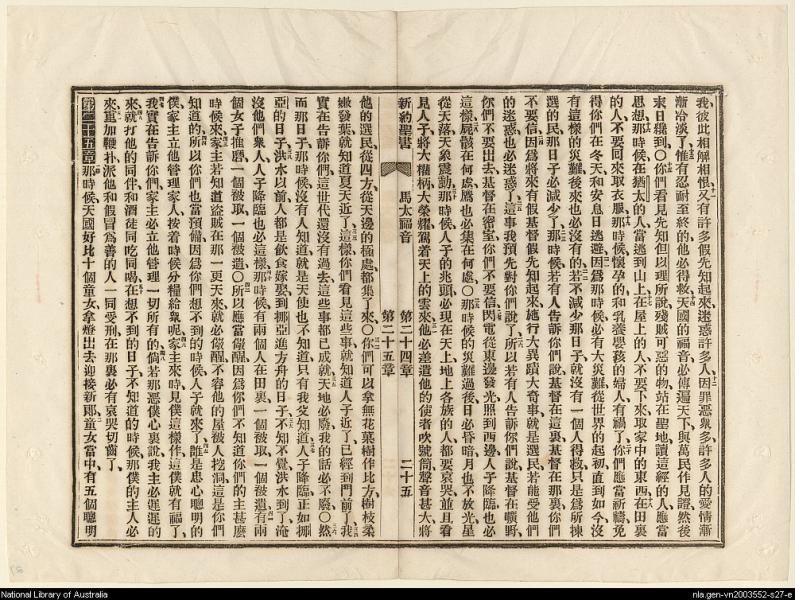 我、彼此相解相恨、又有許多假先知起來、迷惑許多人、因罪惡衆多、許多人的愛情漸
漸冷淡了、惟有忍耐至終的、他必得救、天國的福音、必傳遍天下、與萬民作見證、然後
末日纔到○你們看見先知但以理所說殘賊可惡的物、站在聖地、讀這經的人應當
思想、那時候在猶太的人、當逃到山上、在屋上的人、不要下來取家中的東西、在田裏
的人、不要回來取衣服、那時候懷孕的和乳養嬰孩的婦人有禍了、你們應當祈禱、免
得你們在冬天和安息日逃避、因為那時候必有大災難、從世界的起初、直到如今、沒
有這樣的災難、後來也必沒有的、若不減少那日子、就沒有一個人得救、只是為所揀
選的民、那日子必減少了、那時候若有人告訴你們說、基督在這裏、基督在那裏、你們
不要信、因為將來有假基督假先知起來、施行大異蹟大奇事、就是選民若能受他們
的迷惑、也必迷惑了、這事我預先對你們說了、所以若有人告訴你們說、基督在曠野、
你們不要出去、基督在密室、你們不要信、閃電從東邊發光、照到西邊、人子降臨也必
這樣、屍骸在何處、鷹也必集在何處○那時候的災難過後、日必昏暗、月也不放光、星
從天落、天象震動、那時候人子的兆頭、必現在天上、地上各族的人都要哀哭、並且看
見人子將大權柄大榮耀、駕着天上的雲來、他必差遣他的使者、吹號筒聲音甚大、將
新約聖書 馬太福音 第二十四章 第二十五章 二十五
他的選民、從四方、從天邊的極處、都集了來○你們可以拿無花菓樹作比方、樹枝柔
嫩發葉、就知道夏天近了、這樣你們看見這些事、就知道人子近了、已經到門前了、我
實在告訴你們、這世代還沒有過去、這些事都已成就、天地必廢、我的話必不廢○然
而那日子那時候、沒有人知道、就是天使也不知道、只有我父知道、人子降臨、正如挪
亞的日子、洪水以前、人都是飲食嫁娶、到挪亞進方舟的日子、不知不覺洪水到了、淹
沒他們衆人、人子降臨也必這樣、那時候有兩個人在田裏、一個被取、一個被遺、有兩
個女子推磨、一個被取、一個被遺○所以應當儆醒、因為你們不知道你們的主甚麼
時候來、家主若知道盜賊在那一更天來、就必儆醒、不容他的屋被人挖洞、這是你們
知道的、所以你們也當預備、因為你們想不到的時候、人子就來了、誰是忠心聰明的
僕、家主立他管理家人、按着時候分糧給衆呢、家主來時、見僕這樣作、這僕就有福了、
我實在告訴你們、家主必立他管理一切所有的、倘若那惡僕心裏說、我主必遲遲的
來、就打他的同伴、和酒徒同吃同喝、在想不到的日子、不知道的時候、那僕的主人必
來、重加鞭扑、派他和假冒為善的人一同受刑、在那裏必有哀哭切齒了、
第二十五章 那時候天國好比十個童女拿燈出去迎接新郎、童女當中有五個聰明
National Library of Australia
nla.gen-vn2003552-s27-e